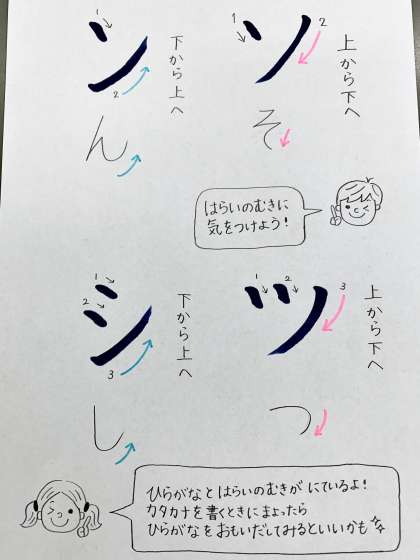 1
2
ン
下から上へ
ん
1
2
ソ
上から下へ
そ
はらいのむきに
気をつけよう!
1
2
3
シ
下から上へ
し
1
2
3
ツ
上から下へ
つ
ひらがなとはらいのむきがにているよ!
カタカナを書くときにまよったら
ひらがなをおもいだしてみるといいかも